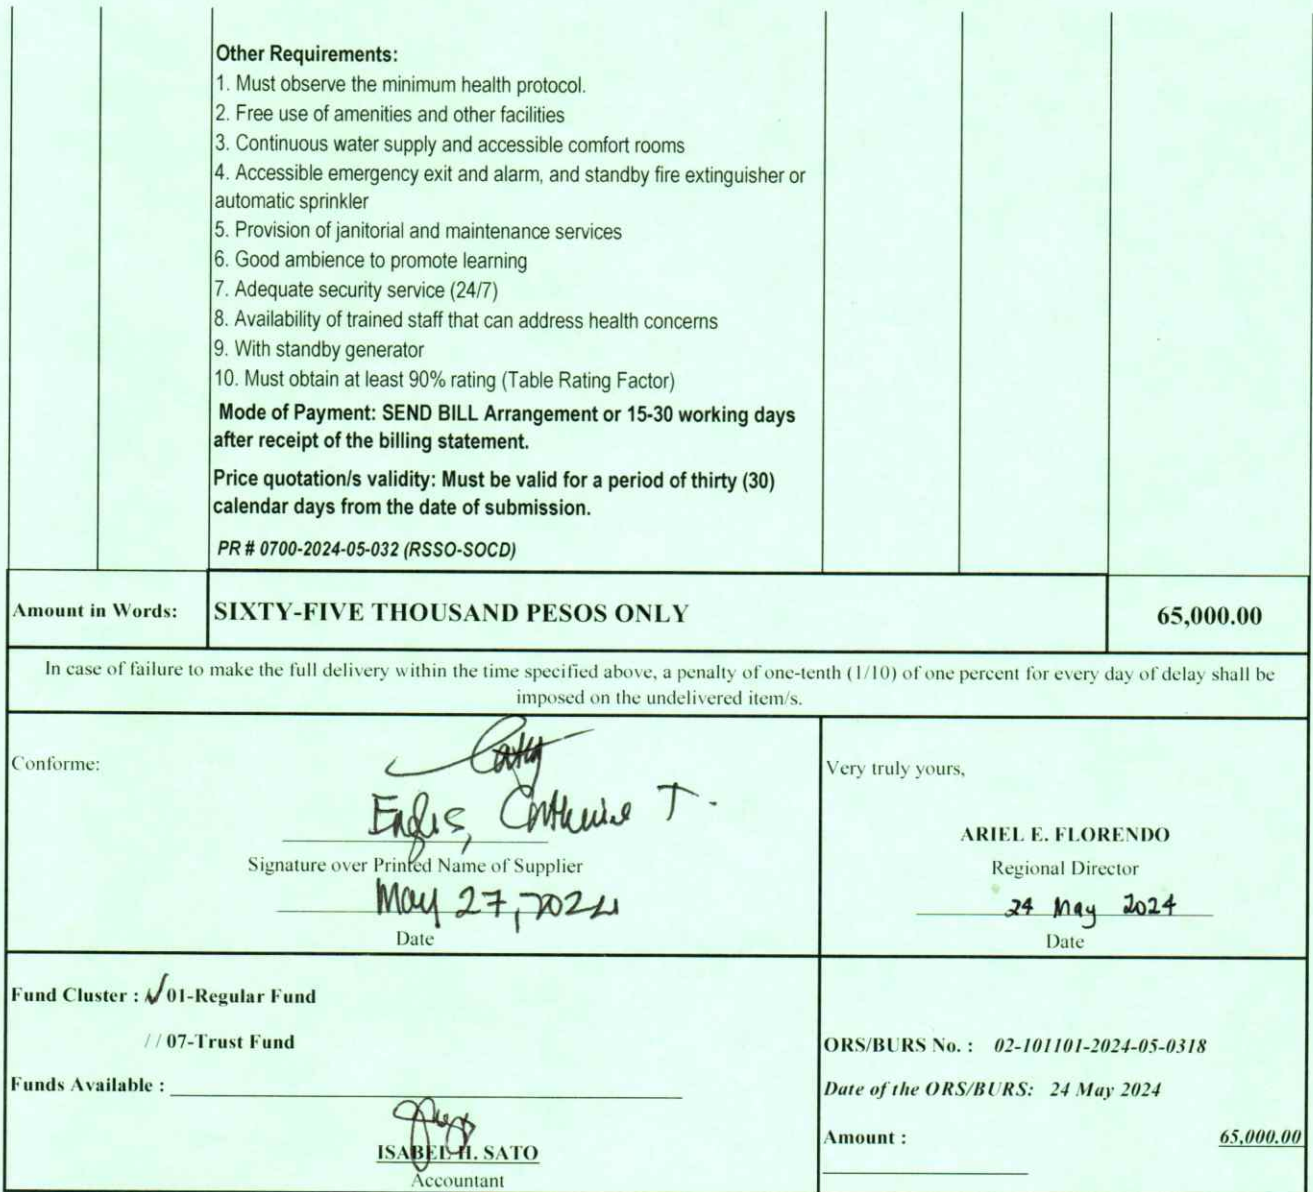 Other Requirements:
1. Must observe the minimum health protocol.
2. Free use of amenities and other facilities
3. Continuous water supply and accessible comfort rooms
4. Accessible emergency exit and alarm, and standby fire extinguisher or
automatic sprinkler
5. Provision of janitorial and maintenance services
6. Good ambience to promote learning
7. Adequate security service (24/7)
8. Availability of trained staff that can address health concerns
9. With standby generator
10. Must obtain at least 90% rating (Table Rating Factor)
Mode of Payment: SEND BILL Arrangement or 15-30 working days
after receipt of the billing statement.
Price quotation/s validity: Must be valid for a period of thirty (30)
calendar days from the date of submission.
PR # 0700-2024-05-032 (RSSO-SOCD)
Amount in Words: SIXTY-FIVE THOUSAND PESOS ONLY 65,000.00
In case of failure to make the full delivery within the time specified above, a penalty of one-tenth (1/10) of one percent for every day of delay shall be
imposed on the undelivered item/s.
Conforme:
T.
Signature over Printed Name of Supplier
May 27, 2024
Date
Very truly yours,
ARIEL E. FLORENDO
Regional Director
24 May 2024
Date
Fund Cluster : 01-Regular Fund
/ / 07-Trust Fund
Funds Available :
ISABEL H. SATO
Accountant
ORS/BURS No. : 02-101101-2024-05-0318
Date of the ORS/BURS: 24 May 2024
Amount : 65,000.00